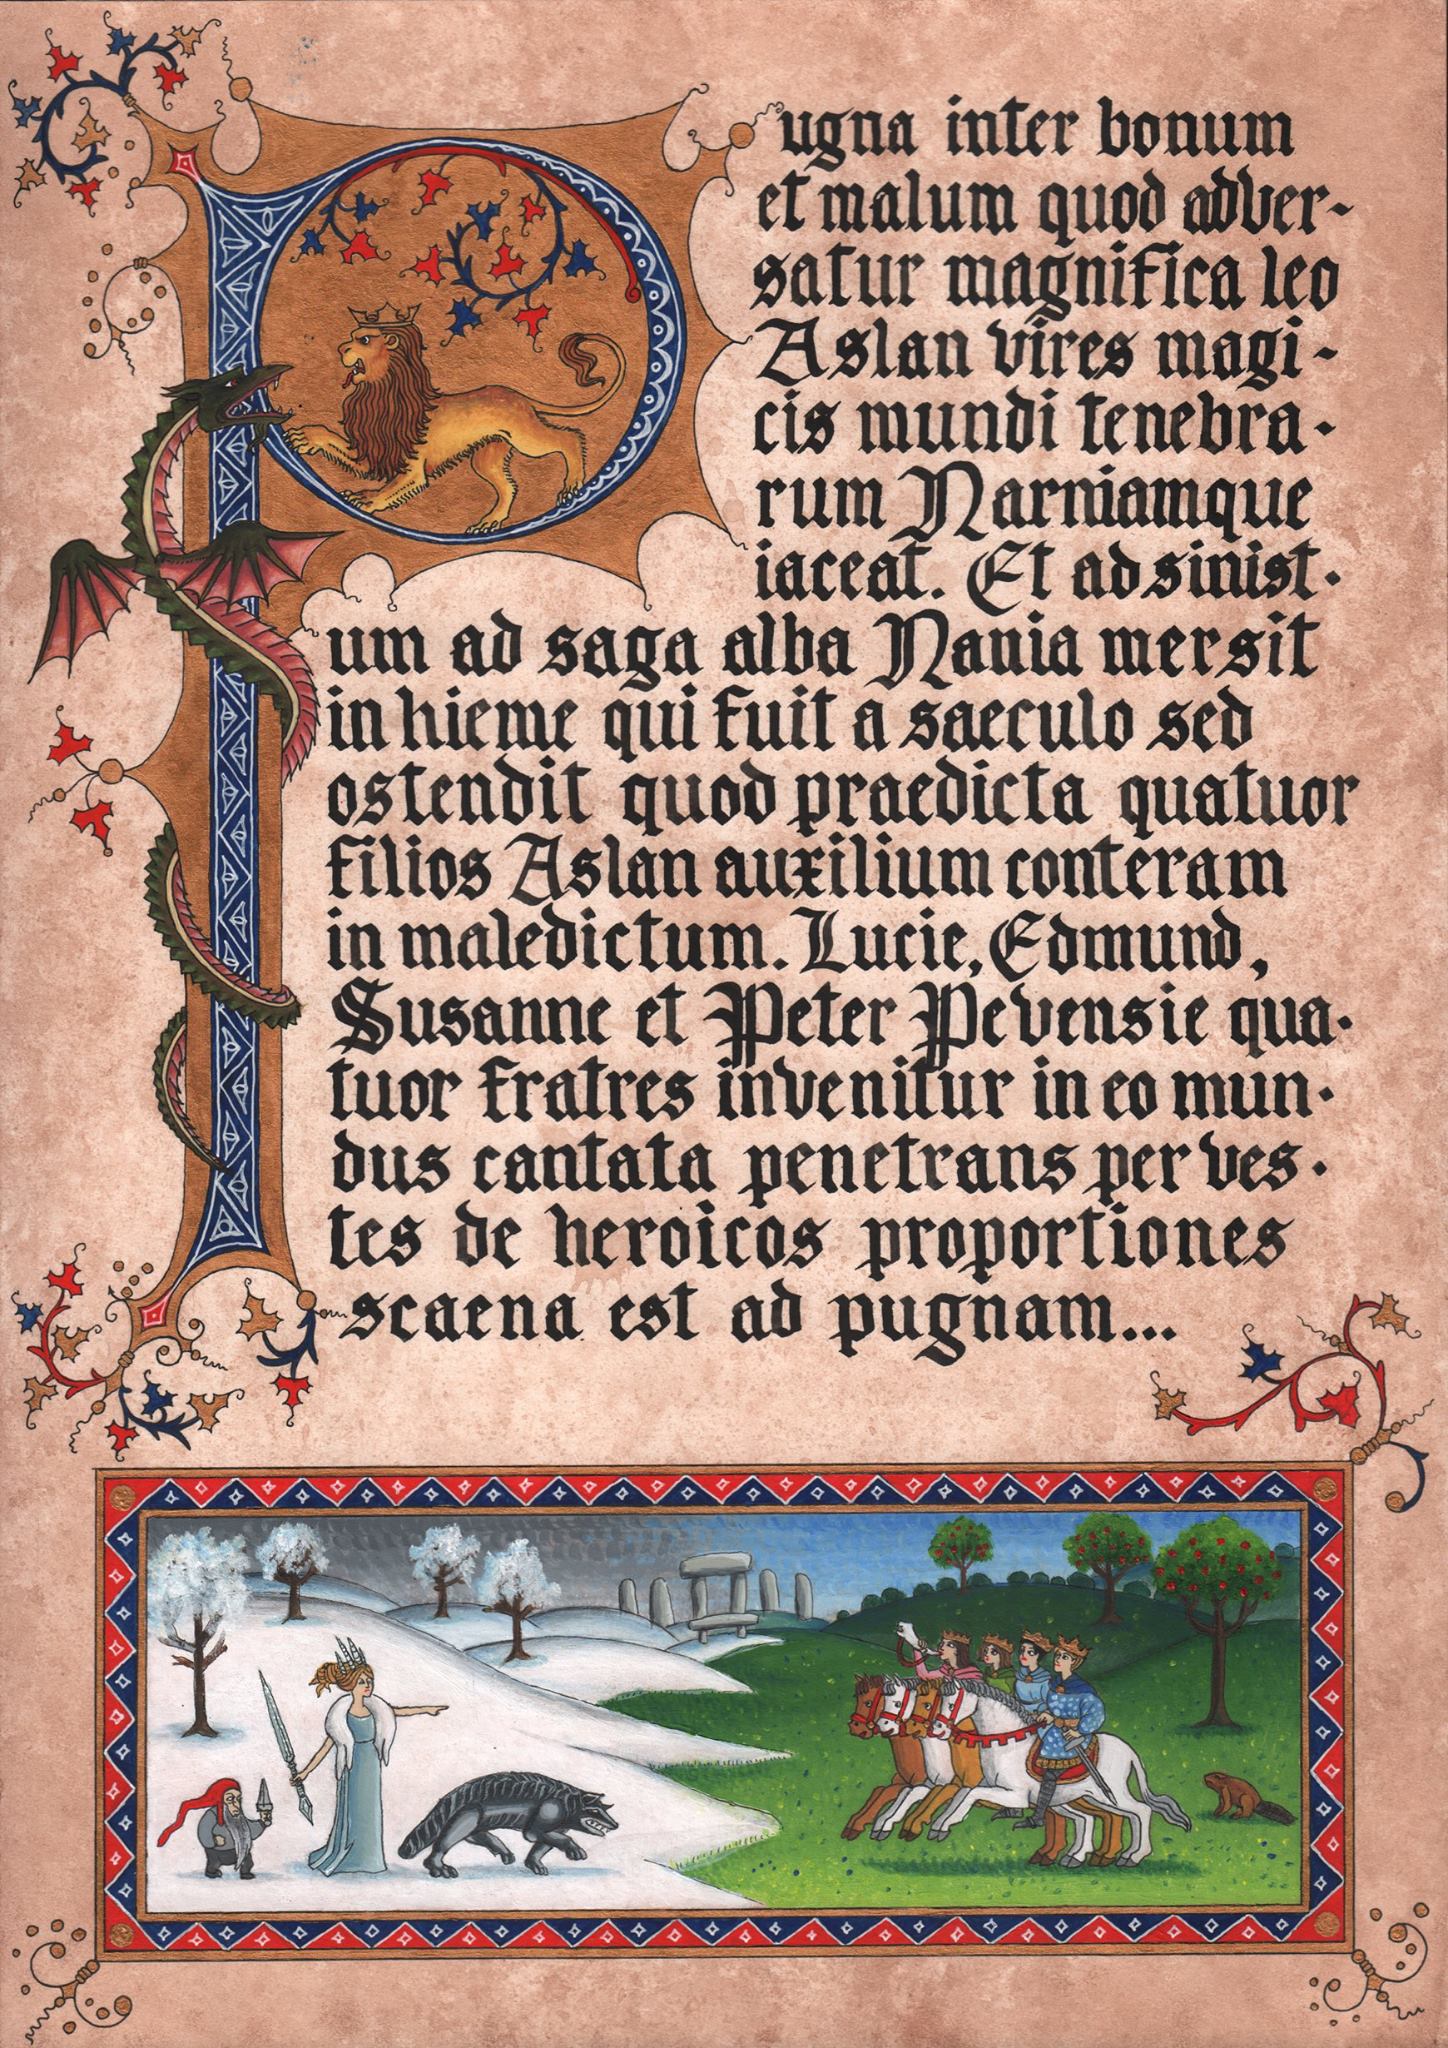 Pugna inter bonum
et malum quod adver-
satur magnifica leo
Aslan vires magi-
cis mundi tenebra-
rum Narniamque
iaceat. Et ad sinist-
um ad saga alba Nania mersit
in hieme qui fuit a saeculo sed
ostendit quod praedicta quatuor
filios Aslan auxilium conteram
in maledictum. Lucie, Edmund,
Susanne et Peter Pevensie qua-
tuor fratres invenitur in eo mun-
dus cantata penetrans per ves-
tes de heroicos proportiones
scaena est ad pugnam...